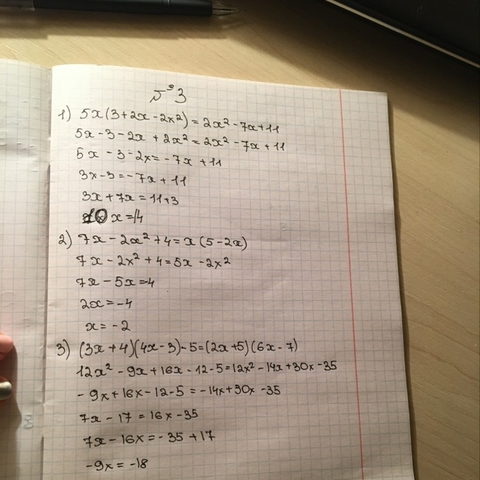 №3
1) 5x(3+2x-2x²)=2x²-7x+11
5x-3-2x+2x²=2x²-7x+11
5x-3-2x=-7x+11
3x-3=-7x+11
3x+7x=11+3
10x=14
2) 7x-2x²+4=x(5-2x)
7x-2x²+4=5x-2x²
7x-5x=-4
2x=-4
x=-2
3) (3x+4)(4x-3)-5=(2x+5)(6x-7)
12x²-9x+16x-12-5=12x²-14x+30x-35
-9x+16x-12-5=-14x+30x-35
7x-17=16x-35
7x-16x=-35+17
-9x=-18